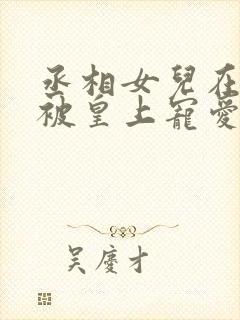 丞相女兒在
被皇上寵愛
吴慶才